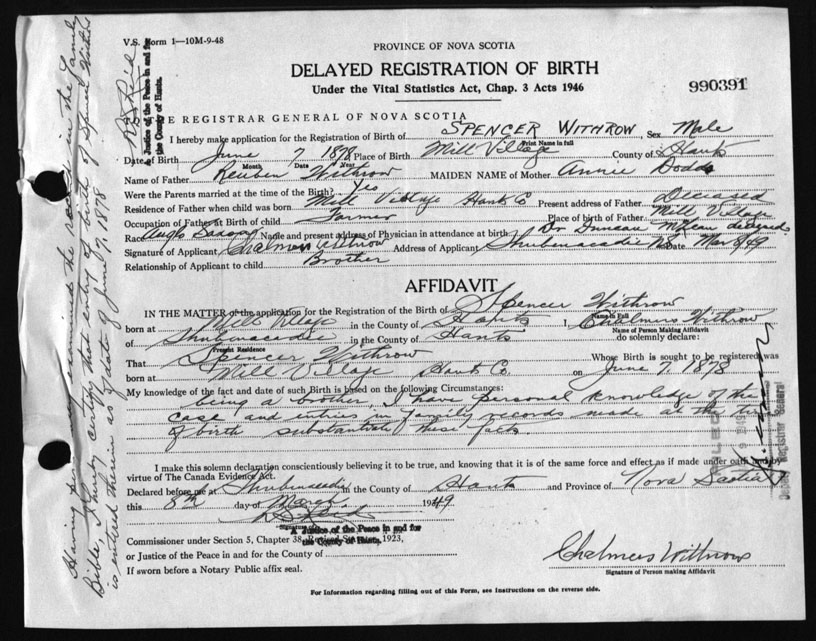 V.S. Form 1—10M-9-48
PROVINCE OF NOVA SCOTIA
DELAYED REGISTRATION OF BIRTH
Under the Vital Statistics Act, Chap. 3 Acts 1946
990391
THE REGISTRAR GENERAL OF NOVA SCOTIA
I hereby make application for the Registration of Birth of SPENCER WITHROW, Sex Male
Print Name in full
Date of Birth June 7, 1878 Place of Birth Mill Village County of Hants
Month Date Year
Name of Father Reuben Withrow MAIDEN NAME of Mother Annie Dodds
Were the Parents married at the time of the Birth? Yes
Residence of Father when child was born Mill Village Hants Co Present address of Father Deceased
Occupation of Father at Birth of child Farmer Place of birth of Father Mill Village
Race Anglo Saxon Name and present address of Physician in attendance at birth Dr Duncan McLean deceased
Signature of Applicant Chalmers Withrow Address of Applicant Shubenacadie N.S. Date Mar 8/49
Relationship of Applicant to child Brother
AFFIDAVIT
IN THE MATTER of the application for the Registration of the Birth of Spencer Withrow
Name in Full
born at Mill Village in the County of Hants I, Chalmers Withrow
Name of Person Making Affidavit
of Shubenacadie in the County of Hants do solemnly declare:
Present Residence
That Spencer Withrow Whose Birth is sought to be registered was
born at Mill Village Hants Co. on June 7, 1878
My knowledge of the fact and date of such Birth is Based on the following Circumstances:
being a brother, I have personal knowledge of the
case and entries in family records made at the time
of birth substantiate these facts.
I make this solemn declaration conscientiously believing it to be true, and knowing that it is of the same force and effect as if made under oath and by
virtue of The Canada Evidence Act.
Declared before me at Shubenacadie in the County of Hants and Province of Nova Scotia
this 8th day of March 1949
Signature of
A Justice of the Peace in and for
the County of Hants.
Commissioner under Section 5, Chapter 38, Revised Statutes, 1923,
or Justice of the Peace in and for the County of
If sworn before a Notary Public affix seal.
Chalmers Withrow
Signature of Person making Affidavit
For Information regarding filling out of this Form, see Instructions on the reverse side.
Having examined the record in the Family
Bible, I hereby certify that entry of birth of Spencer Withrow
is entered therein as of date of June 7, 1878
A Justice of the Peace in and for
the County of Hants.
Deputy Registrar General